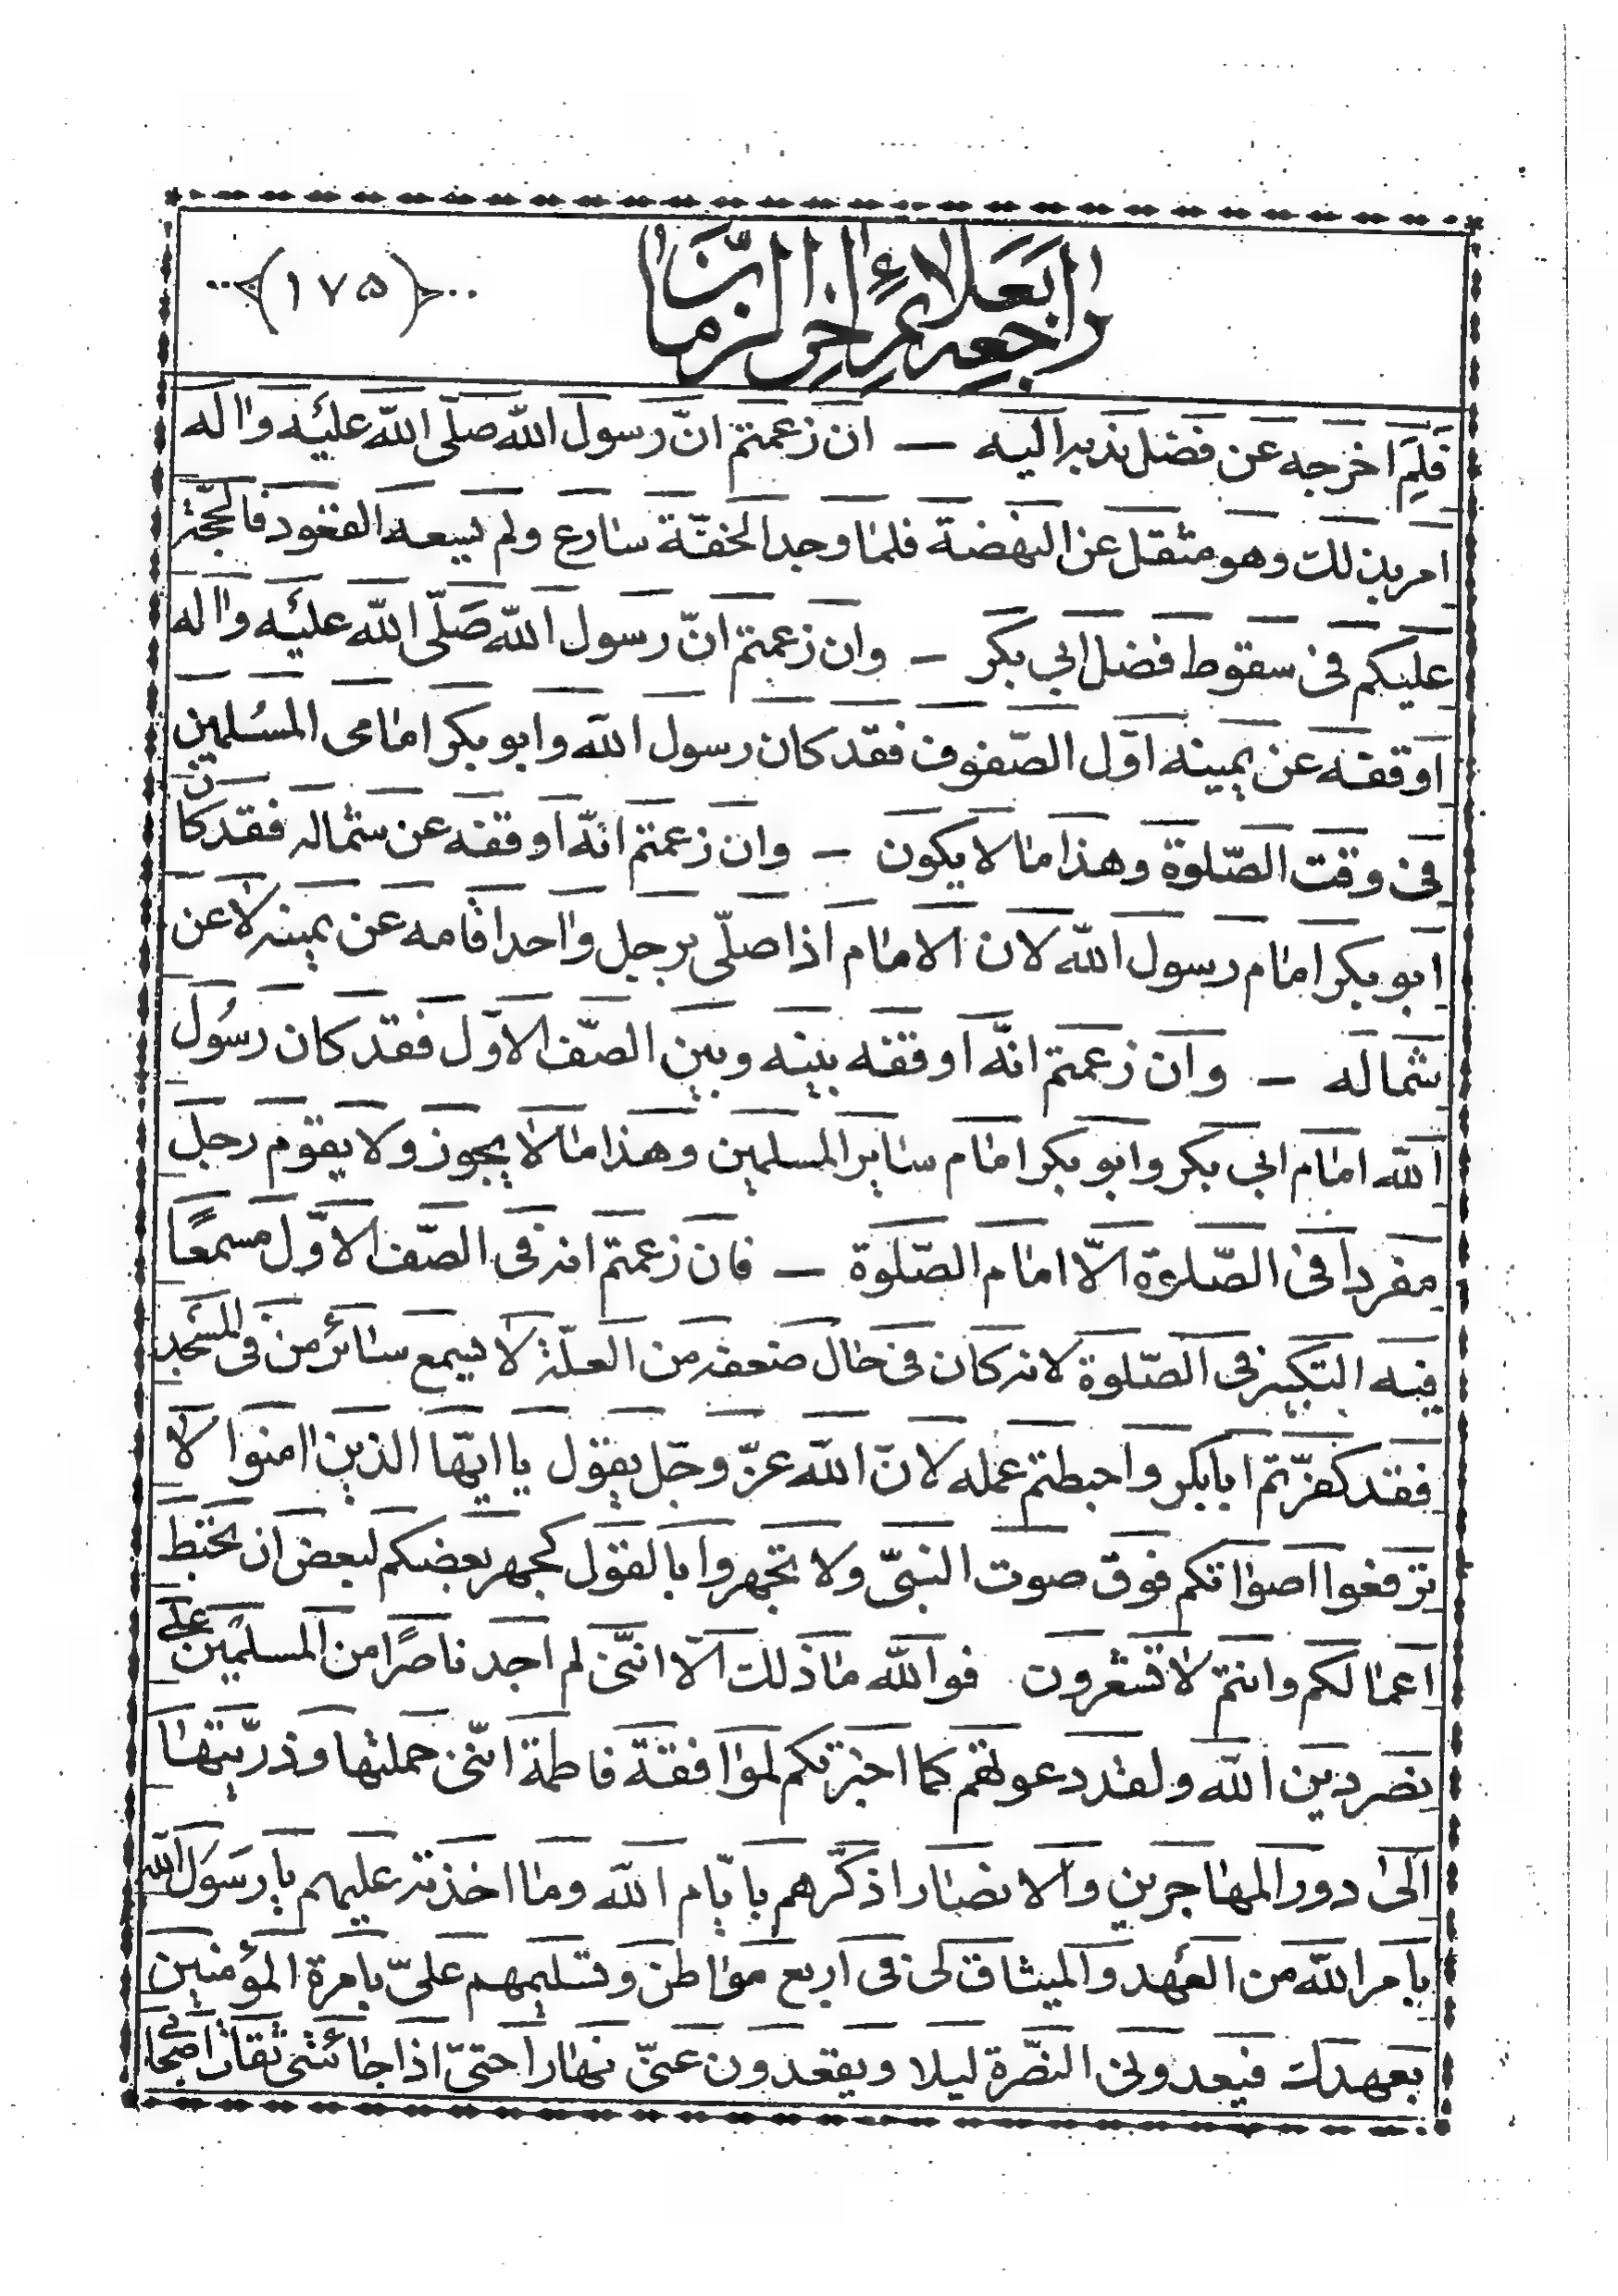 (۱۷۵)
فَلِمَ اخرجه عن فضل ندبه اليه — ان زعمتم انّ رسول اللّه صلّى اللّه عليه واله
امر بذلك وهو مثقل عن النهضة فلما وجد الخفّة سارع ولم يسعه القعود فالحجّة
عليكم في سقوط فضل ابي بكر — وان زعمتم انّ رسول اللّه صَلّى اللّه عليه واله
اوقفه عن يمينه اوّل الصّفوف فقد كان رسول اللّه وابو بكر امامى المسُلمين
في وقت الصّلوة وهذا ما لا يكون — وان زعمتم انّه اوقفه عن شماله فقد كان
ابو بكر امام رسول اللّه لان الامام اذا صلّى برجل واحد اقامه عن يمينه لا عن
شماله — وان زعمتم انّه اوقفه بينه وبين الصّف الاوّل فقد كان رسُول
اللّه امام ابي بكر وابو بكر امام ساير المسلمين وهذا ما لا يجوز ولا يقوم رجل
مفردا في الصّلوة الّا امام الصّلوة — فان زعمتم انه في الصّف الاوّل مسمعًا
فيه التكبير في الصّلوة لانه كان في حال ضعفه من العلّة لا يسمع سائر من في المسَجد
فقد كفرّتم ابابكر واحبطتم عمله لانّ اللّه عزّ وجّل يقول يا ايّها الذين امنوا لا
ترفعوا اصواتكم فوق صوت النبىّ ولا تجهروا بالقول كجهر بعضكم لبعض ان تحبط
اعمالكم وانتم لا تشعرون فو اللّه ما ذلك الّا انّنى لم اجد ناصرًا من المسلمين على
نصر دين اللّه ولقد دعوتهم كما اخبرتكم لموافقة فاطمة انّنى حملتها وذرّيتها
الى دور المهاجرين والانصار اذكّرهم بايّام اللّه وما اخذته عليهم يا رسَول اللّه
بامر اللّه من العهد والميثاق لى في اربع مواطن وتسليمهم علىّ بامرة المؤمنين
بعهدك فيعدونى النصّرة ليلا ويقعدون عنىّ نهارا حتىّ اذا جائتنى ثقات اصحابى